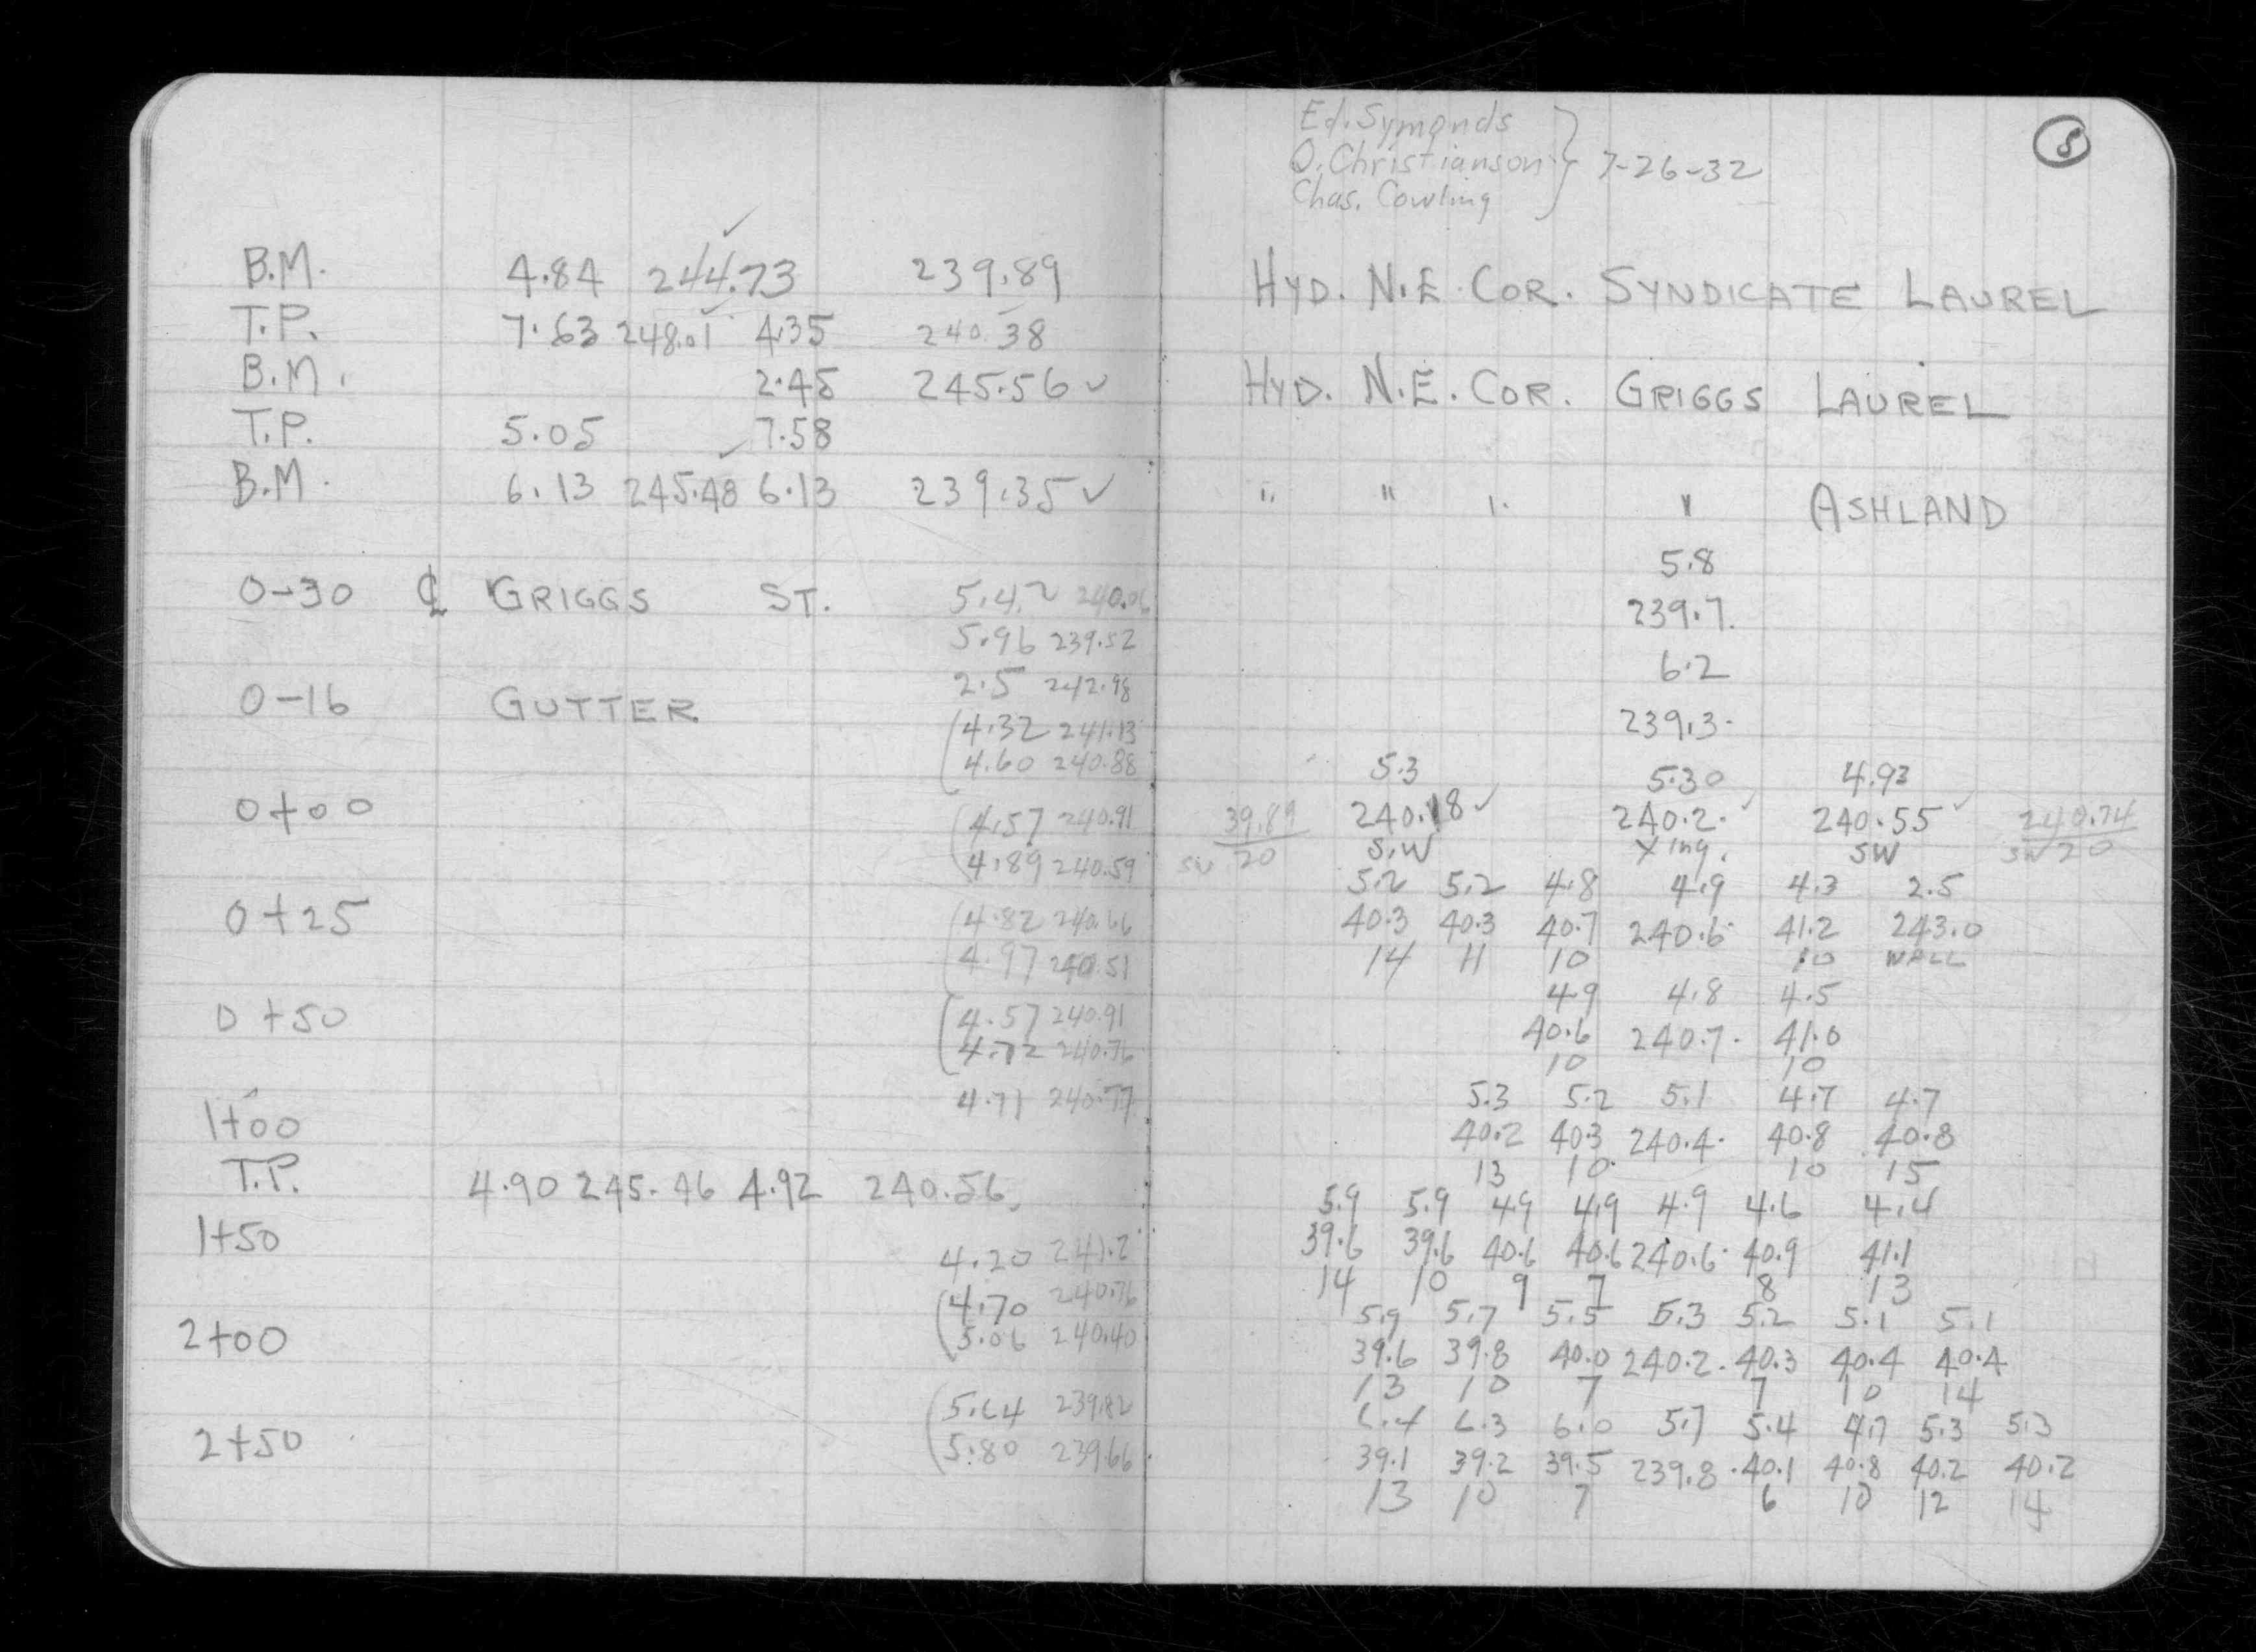 B.M. 4.84 244.73 239.89
T.P. 7.63 248.01 4.35 240.38
B.M. 2.45 245.56 ✓
T.P. 5.05 7.58
B.M. 6.13 245.48 6.13 239.35 ✓
0-30 ℄ GRIGGS ST. 5.42 240.06
5.96 239.52
2.5 242.98
0-16 GUTTER
(4.32 241.13
4.60 240.88
0+00 (4.57 240.91
4.89 240.59
0+25 (4.82 240.66
4.97 240.51
0+50 (4.57 240.91
4.72 240.76
4.71 240.77
1+00
T.P. 4.90 245.46 4.92 240.56
1+50 4.20 241.2
(4.70 240.76
2+00 5.06 240.40
(5.64 239.82
2+50 5.80 239.66
5
Ed. Symonds
O. Christianson } 7-26-32
Chas. Cowling
HYD. N.E. COR. SYNDICATE LAUREL
HYD. N.E. COR. GRIGGS LAUREL
" " " " ASHLAND
5.8
239.7
6.2
239.3
5.3 5.30 4.93
39.89 240.18 ✓ 240.2 ✓ 240.55 ✓ 240.74
SW 20 S.W Xing. SW SW 20
5.2 5.2 4.8 4.9 4.3 2.5
40.3 40.3 40.7 240.6 41.2 243.0
14 11 10 10 WALL
4.9 4.8 4.5
40.6 240.7 41.0
10 10
5.3 5.2 5.1 4.7 4.7
40.2 40.3 240.4 40.8 40.8
13 10 10 15
5.9 5.9 4.9 4.9 4.9 4.6 4.4
39.6 39.6 40.6 40.6 240.6 40.9 41.1
14 10 9 7 8 13
5.9 5.7 5.5 5.3 5.2 5.1 5.1
39.6 39.8 40.0 240.2 40.3 40.4 40.4
13 10 7 7 10 14
6.4 6.3 6.0 5.7 5.4 4.7 5.3 5.3
39.1 39.2 39.5 239.8 40.1 40.8 40.2 40.2
13 10 7 6 10 12 14